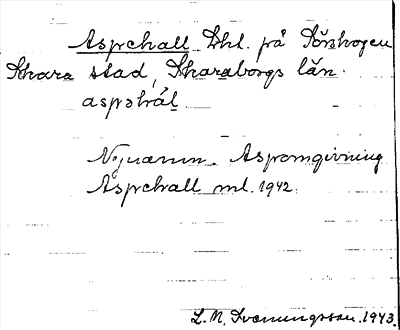 Aspehall Lht. på Sörskogen
Skara stad, Skaraborgs län.
aspshál
Nynamn. Aspomgivning
Aspehall ml. 1942.
L. M. Svenungsson. 1943.